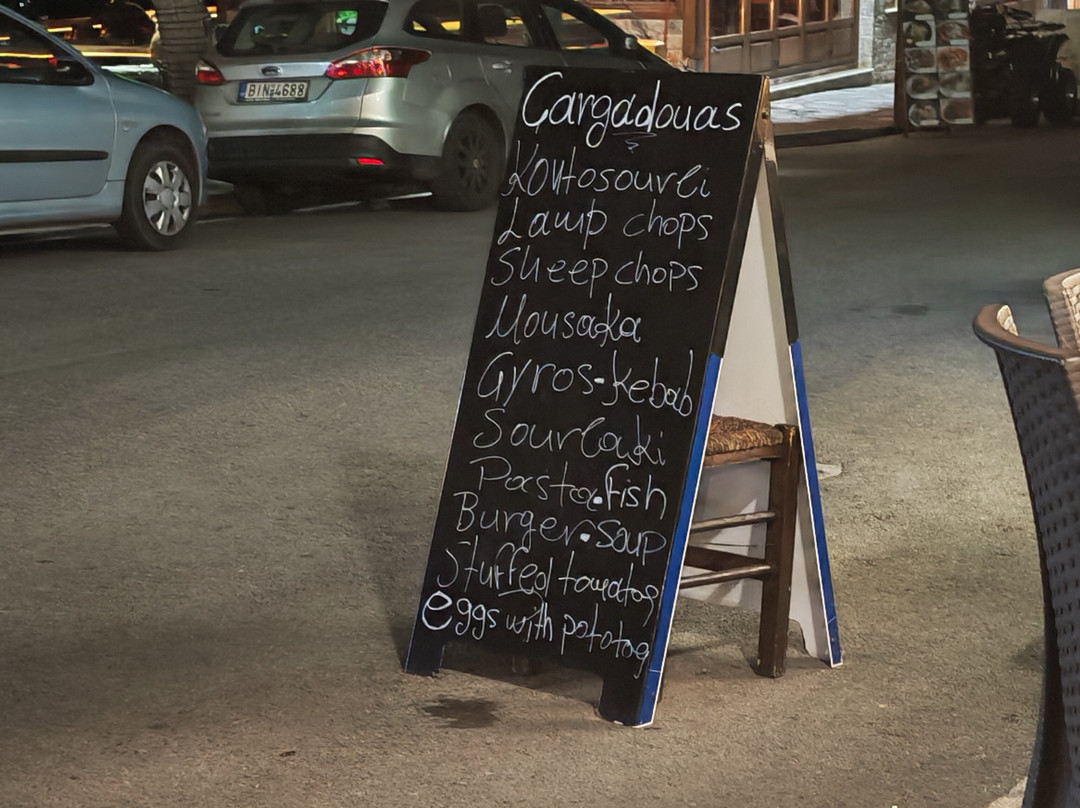 Ford
BIN 4688
Gargadouas
Kontosouvli
Lamp chops
Sheep chops
Mousaka
Gyros-kebab
Souvlaki
Pasta•fish
Burger•soup
Stuffed tomatos
eggs with pototos